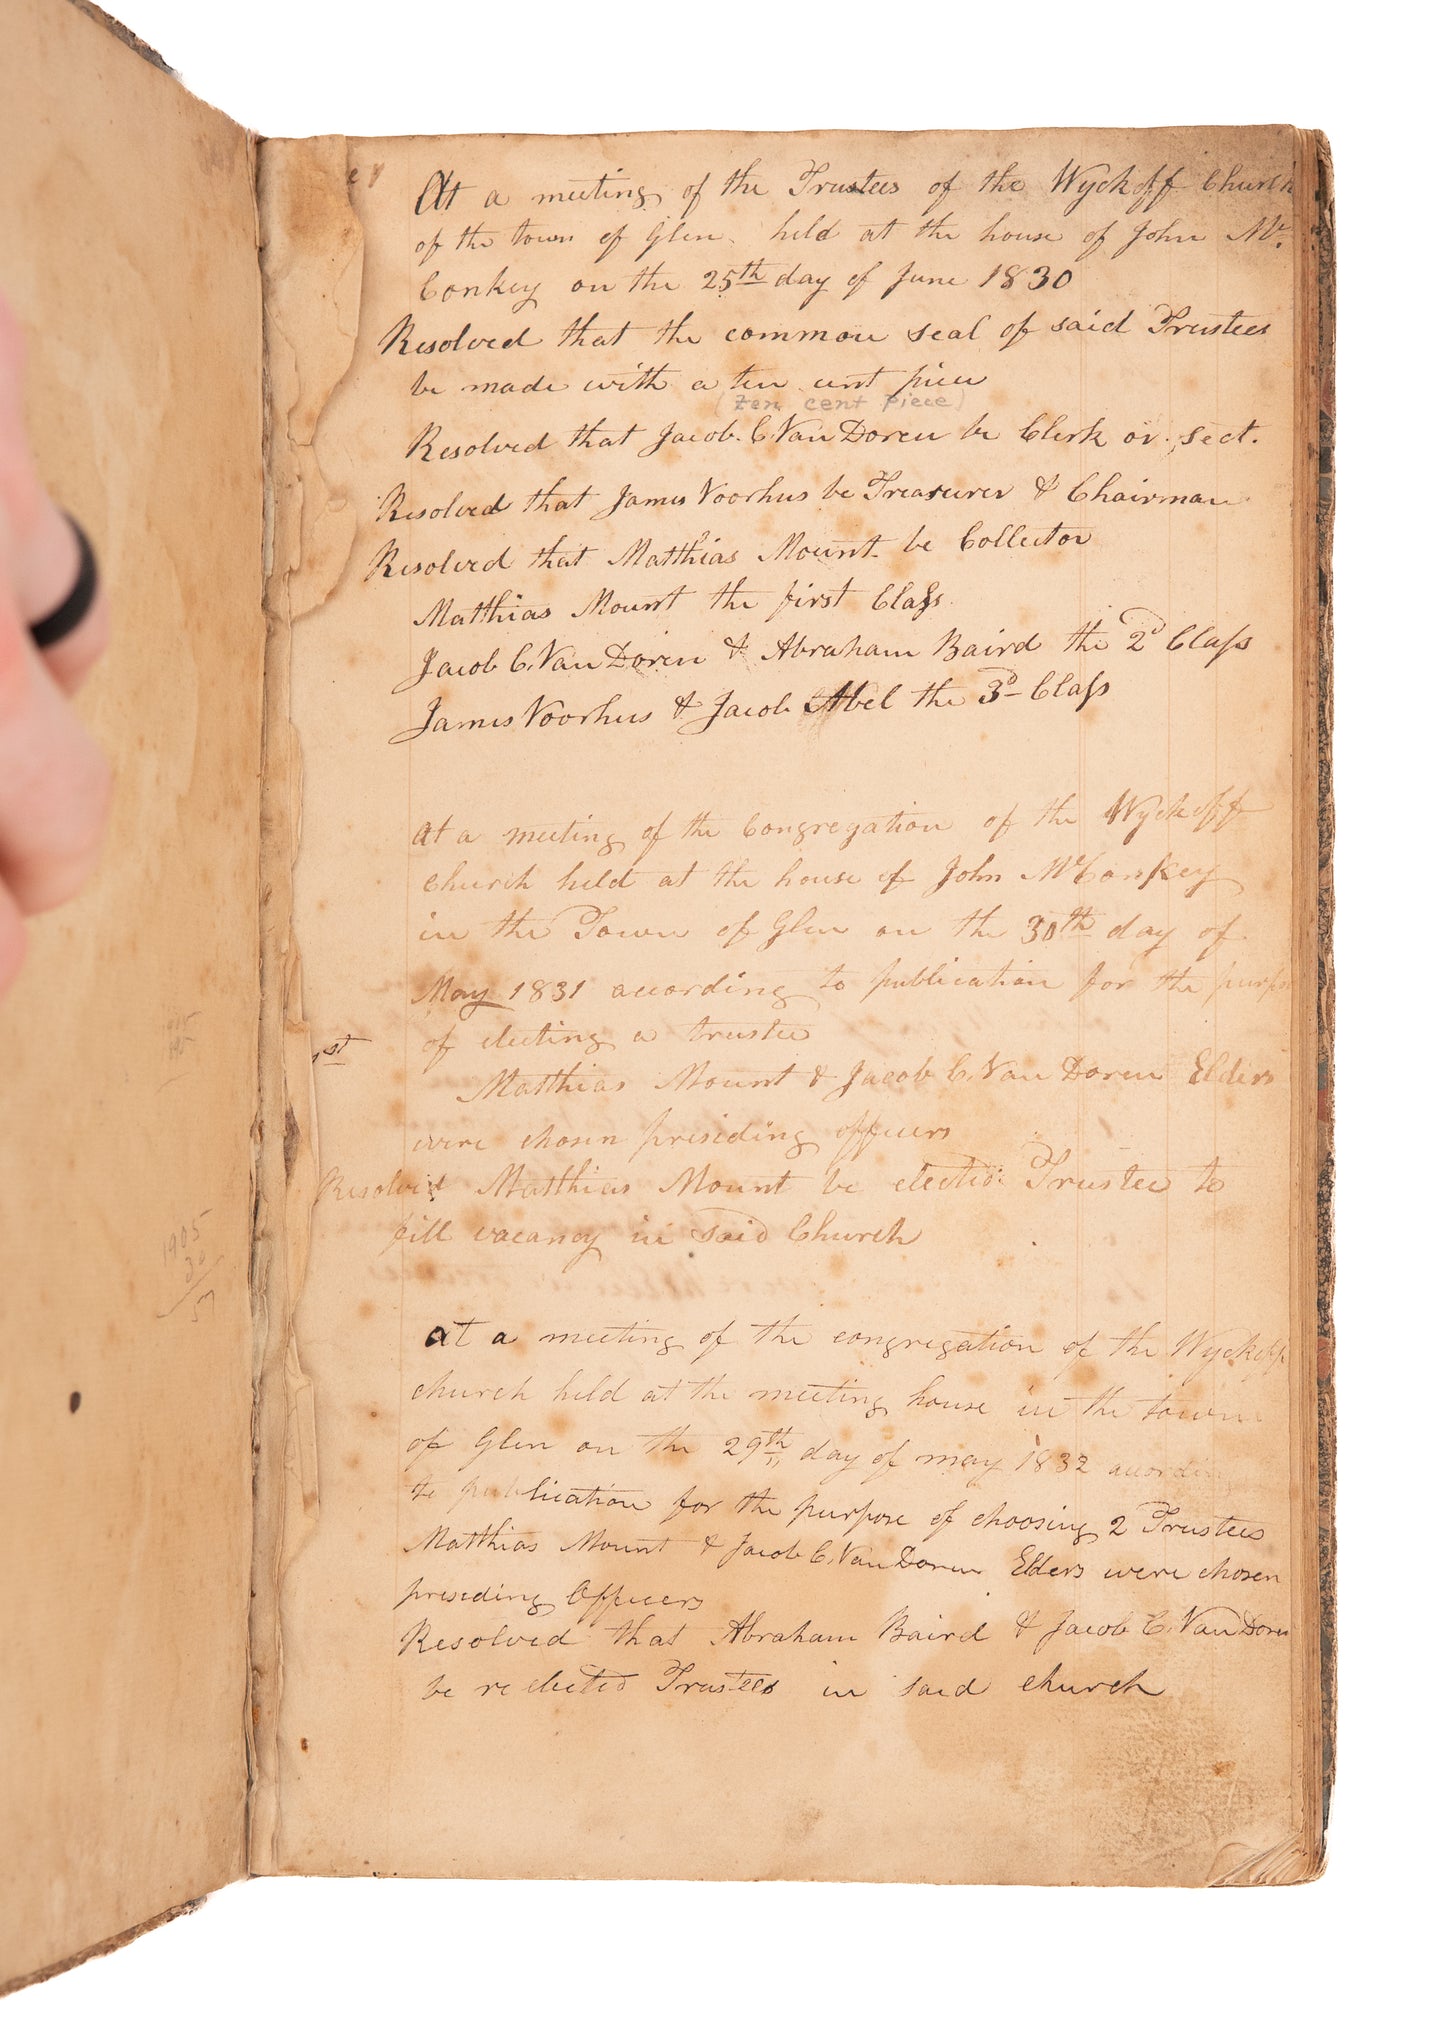 At a meeting of the Trustees of the Wyckoff Church
of the town of Glen held at the house of John Mc
Conkey on the 25th day of June 1830
Resolved that the common seal of said Trustees
be made with a ten cent piece
(ten cent piece)
Resolved that Jacob. C. Van Doren be Clerk or sect.
Resolved that James Voorhes be Treasurer & Chairman
Resolved that Matthias Mount be Collector
Matthias Mount the first Class
Jacob C. Van Doren & Abraham Baird the 2d Class
James Voorhes & Jacob Abel the 3d Class
At a meeting of the Congregation of the Wyckoff
church held at the house of John McConkey
in the Town of Glen on the 30th day of
May 1831 according to publication for the purpose
of electing a trustee
1st
Matthias Mount & Jacob C. Van Doren Elders
were chosen presiding officers
Resolved Matthias Mount be elected Trustee to
fill vacancy in said Church
at a meeting of the congregation of the Wyckoff
church held at the meeting house in the town
of Glen on the 29th day of may 1832 according
to publication for the purpose of choosing 2 Trustees
Matthias Mount & Jacob C. Van Doren Elders were chosen
presiding Officers
Resolved that Abraham Baird & Jacob C. Van Doren
be relected Trustees in said church
1905
30
5